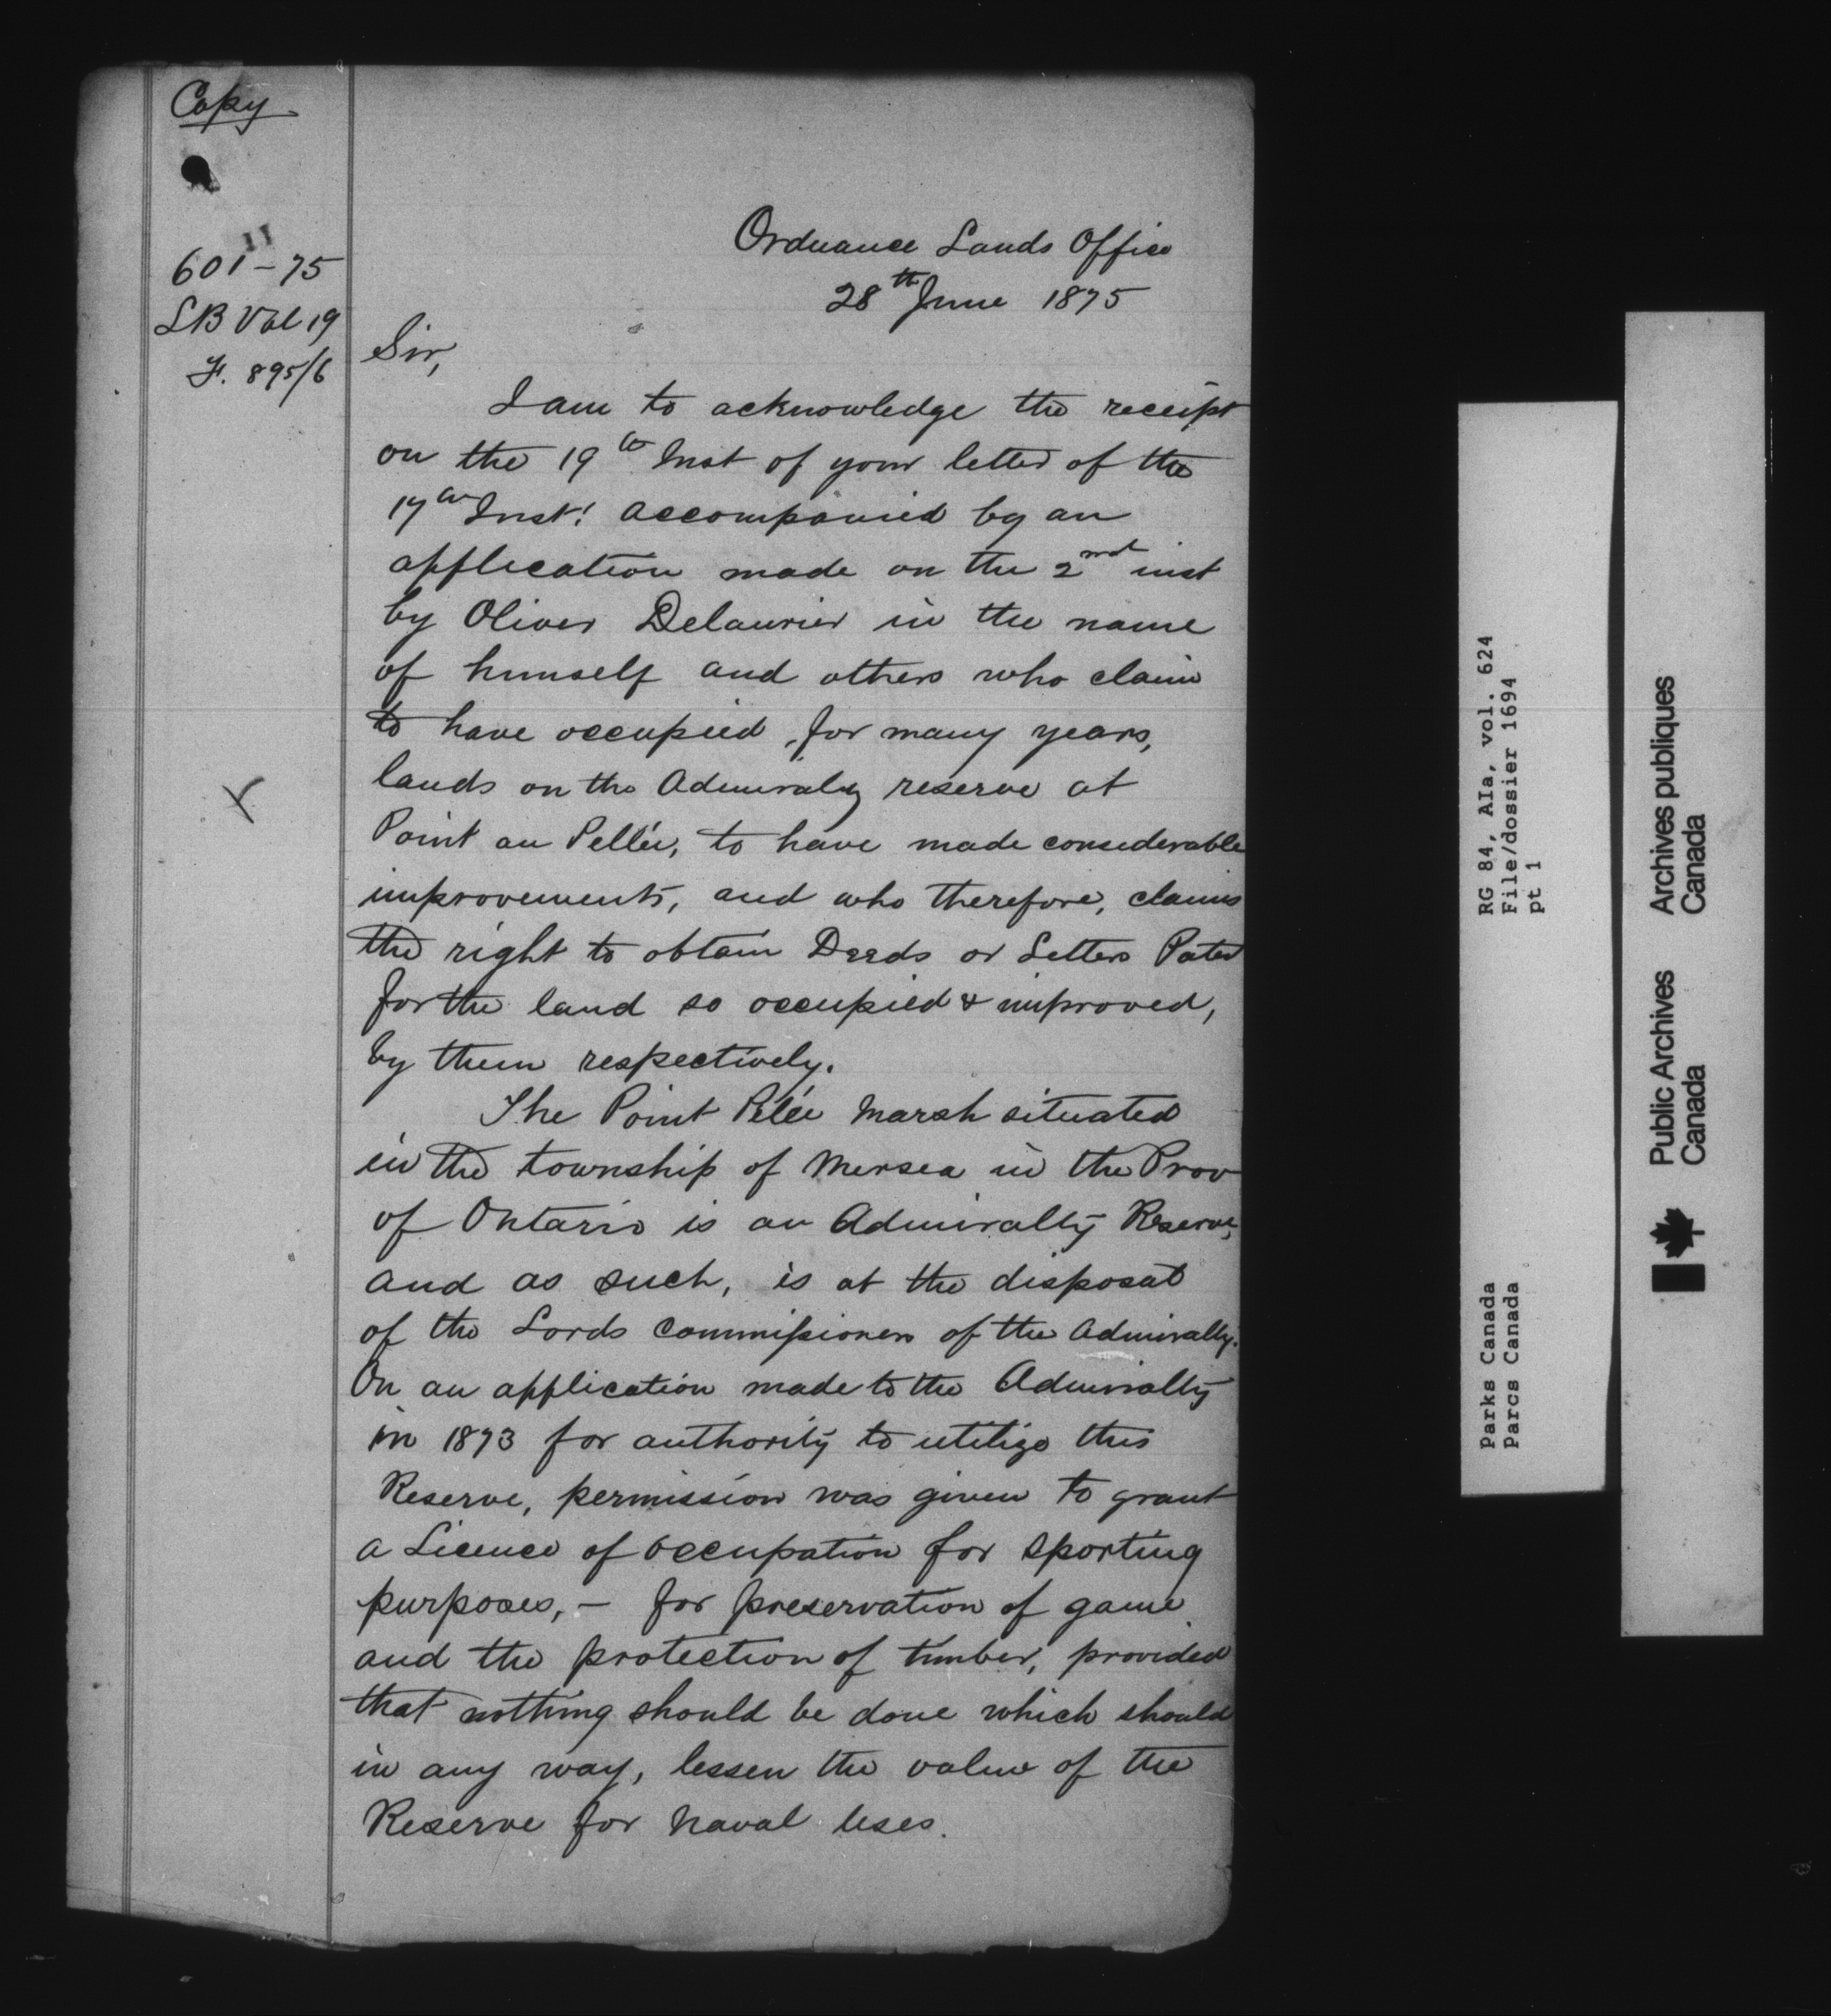 Copy
11
601-75
LB Vol 19
F. 895/6
Ordnance Lands Office
28th June 1875
Sir,
I am to acknowledge the receipt
on the 19th Inst of your letter of the
17th Inst: accompanied by an
application made on the 2nd inst
by Oliver Delaurier in the name
of himself and others who claim
to have occupied, for many years,
lands on the Admiralty reserve at
Point au Pellée, to have made considerable
improvements, and who therefore, claims
the right to obtain Deeds or Letters Patent
for the land so occupied & improved,
by them respectively.
The Point Pelée Marsh situated
in the township of Mersea in the Prov
of Ontario is an Admiralty Reserve,
and as such, is at the disposal
of the Lords Commissioners of the Admiralty.
On an application made to the Admiralty
in 1873 for authority to utilize this
Reserve, permission was given to grant
a Licence of occupation for sporting
purposes, - for preservation of game
and the protection of timber, provided
that nothing should be done which should
in any way, lessen the value of the
Reserve for Naval uses.
RG 84, AIa, vol. 624
File/dossier 1694
pt 1
Parks Canada
Parcs Canada
Public Archives
Canada
Archives publiques
Canada